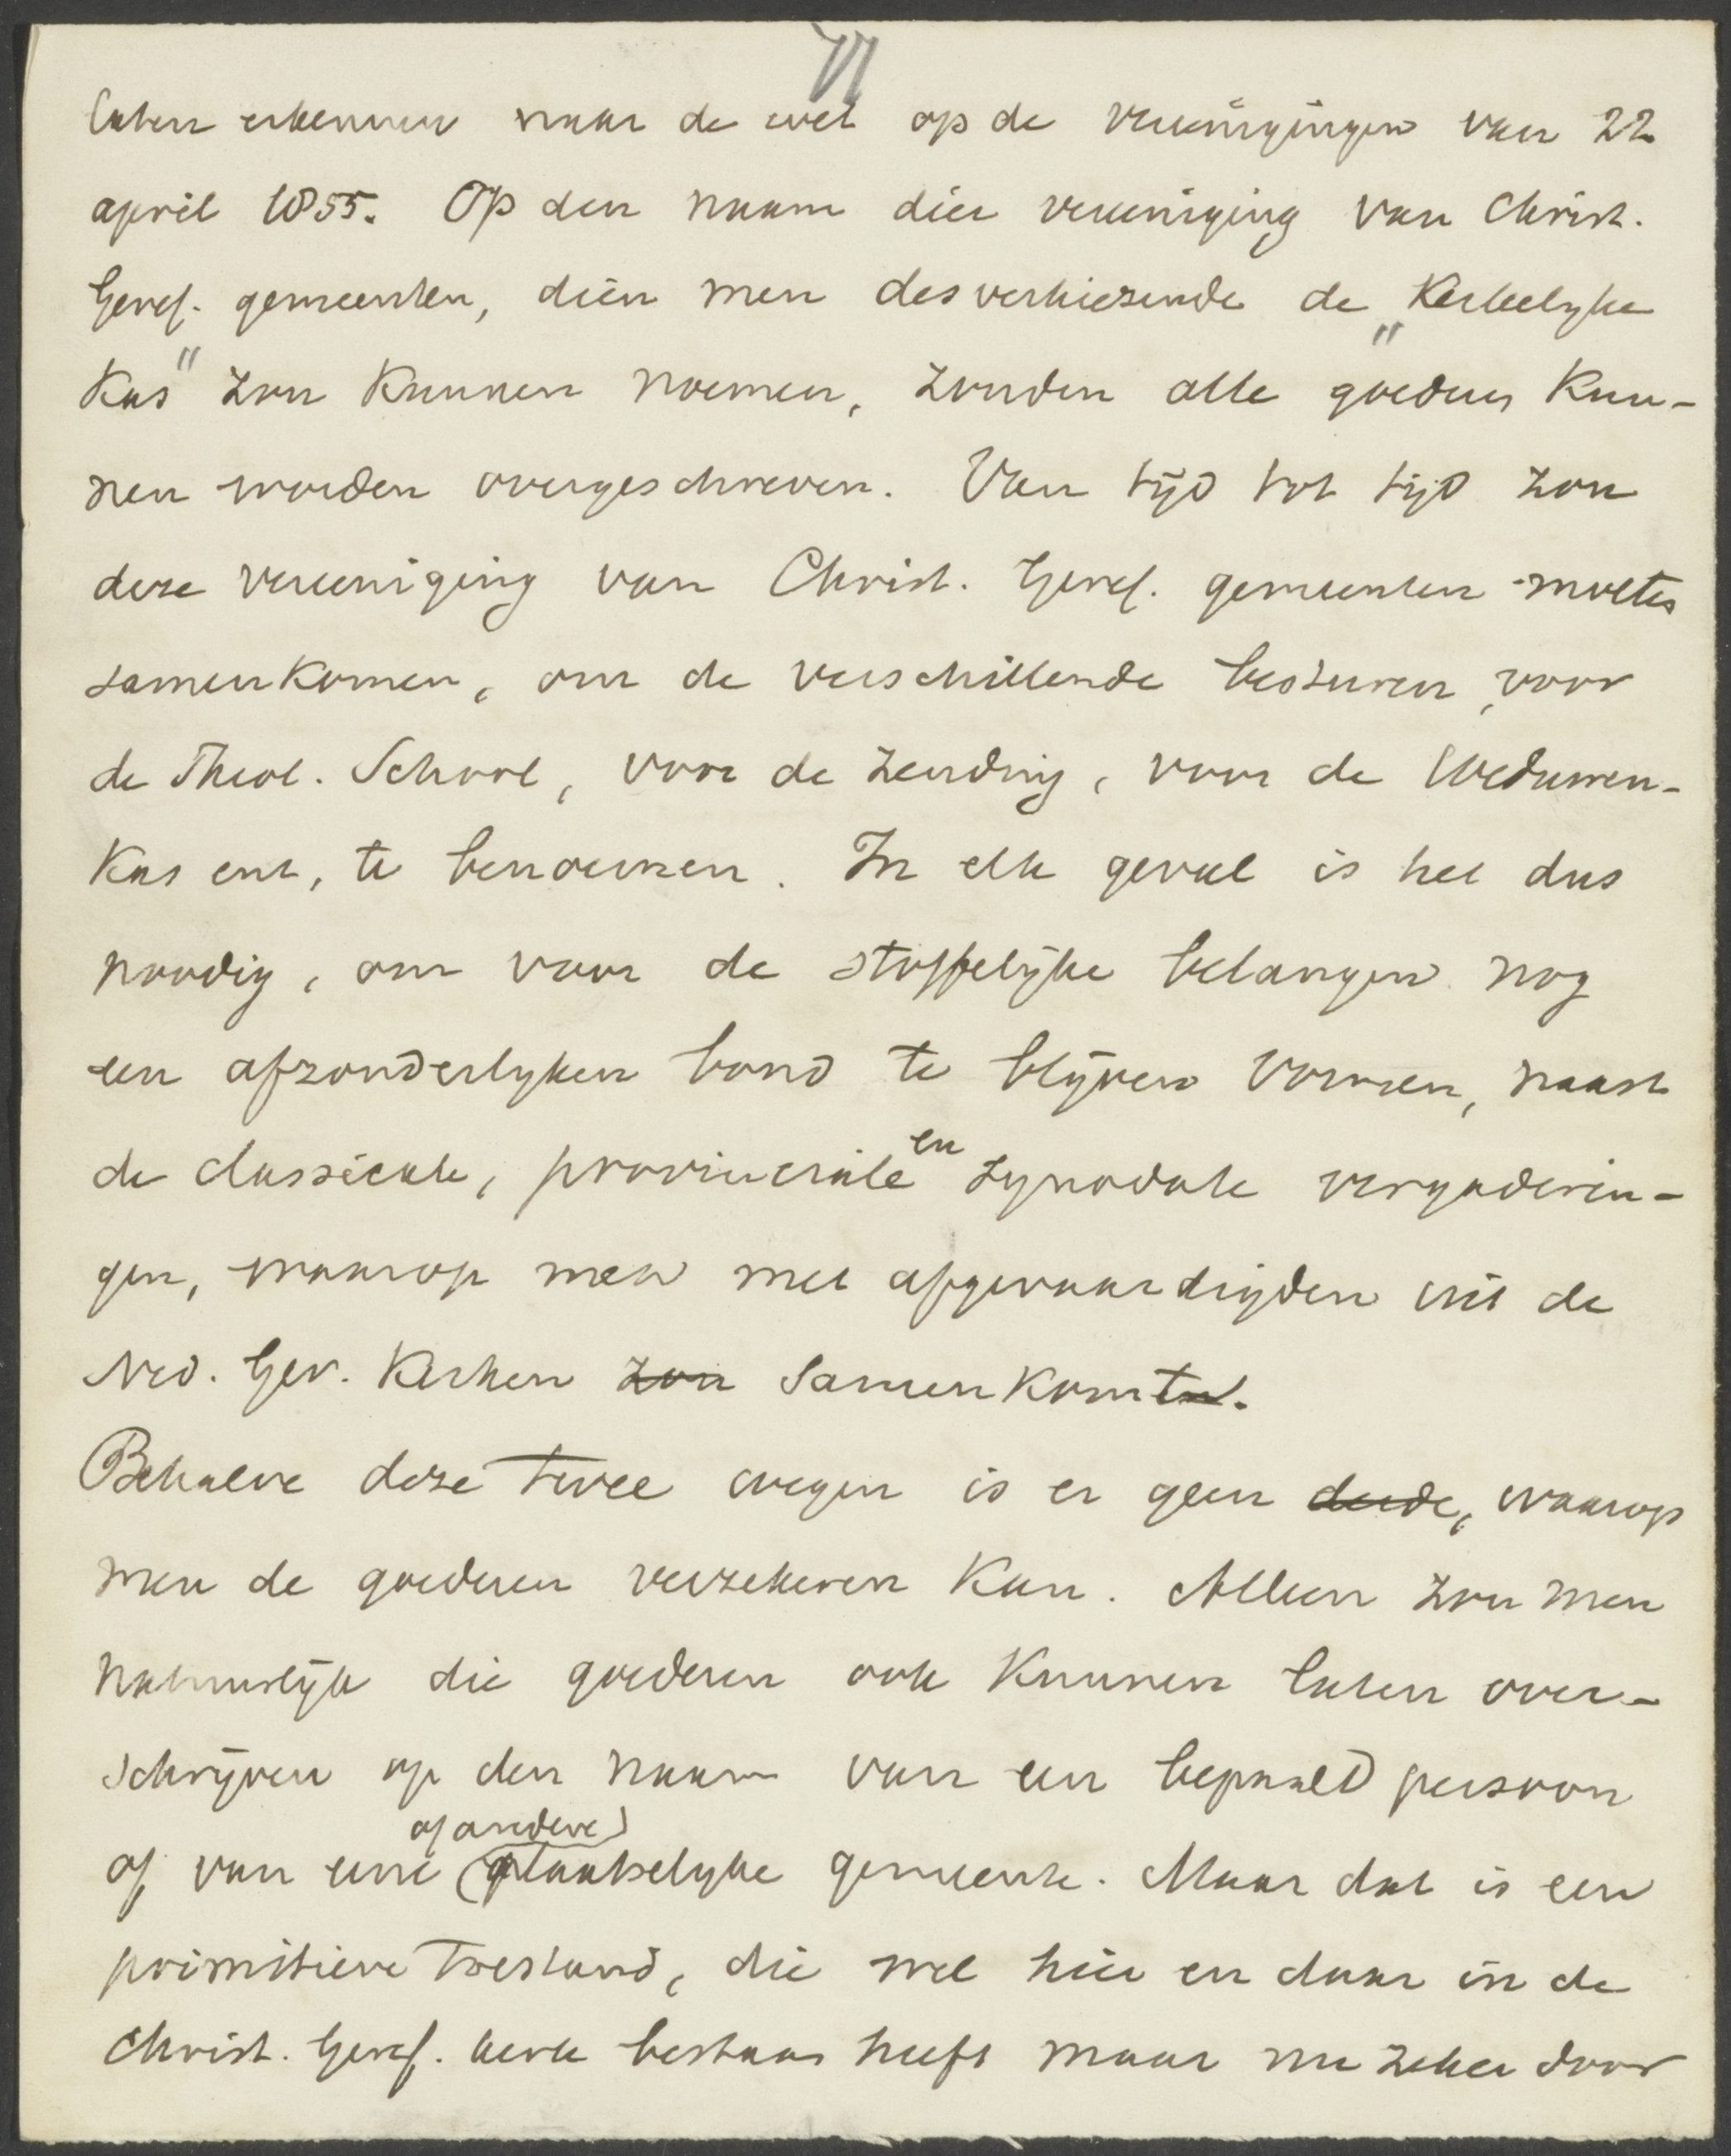 VI
laten erkennen naar de wet op de vereenigingen van 22
april 1855. Op den naam dier vereeniging van Christ.
Geref. gemeenten, dien men desverkiezende de „Kerkelyke
Kas" zou kunnen noemen, zouden alle goederen kun-
nen worden overgeschreven. Van tijd tot tijd zou
deze vereeniging van Christ. Geref. gemeenten moeten
samenkomen, om de verschillende besturen, voor
de Theol. School, voor de Zending, voor de Weduwen-
Kas enz, te benoemen. In elk geval is het dus
noodig, om voor de stoffelijke belangen nog
een afzonderlyken band te blijven vormen, naast
de classicale, provinciale en synodale vergaderin-
gen, waarop men met afgevaardigden uit de
Ned. Ger. Kerken zou samenkomten.
Behalve deze twee wegen is er geen derde, waarop
men de goederen verzekeren kan. Alleen zou men
natuurlijk die goederen ook kunnen laten over-
schrijven op den naam van een bepaald persoon
of van eene (of andere) plaatselyke gemeente. Maar dat is een
primitieve toestand, die wel hier en daar in de
Christ. Geref. kerk bestaan heeft maar nu zeker door